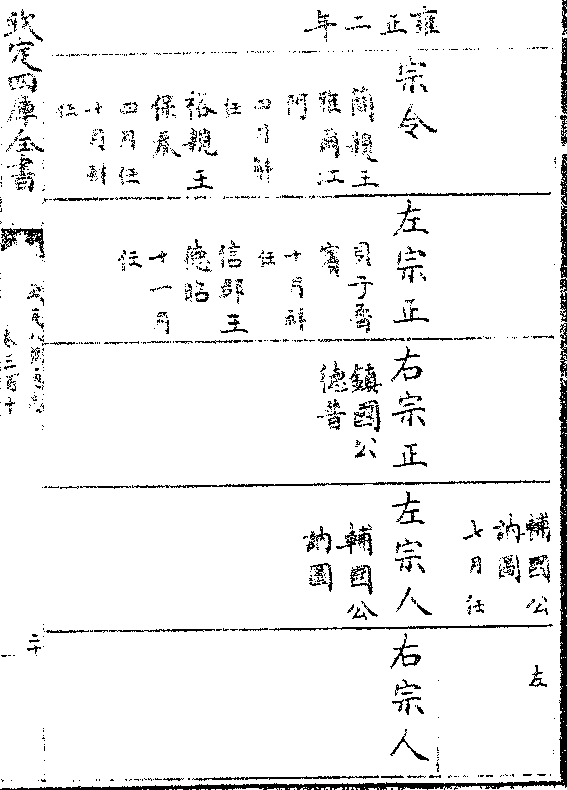 輔國公
訥圖
七月任
左
雍正二年
宗令
簡親王
雅爾江
阿
四月解
任
裕親王
保泰
四月任
十月解
任
左宗正
貝子魯
賓
十月解
任
信郡王
德昭
十一月
任
右宗正
鎮國公
德普
左宗人
輔國公
訥圖
右宗人
欽定四庫全書
欽定八旗通志
卷三百十
二十